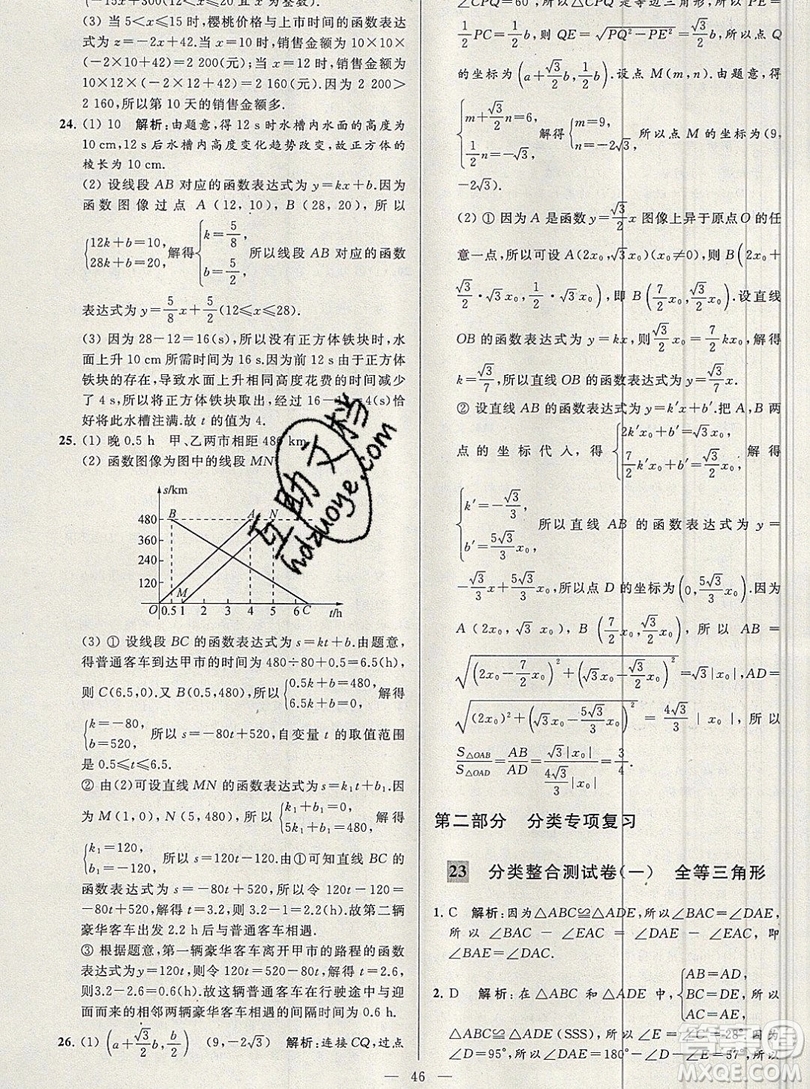 (−15x+300(12<x≤20 且 x 为整数).
(3) 当 5<x≤15 时,樱桃价格与上市时间的函数表达
式为 z=−2x+42.当 x=10 时,销售金额 10×10×
(−2×10+42)=2 200(元);当 x=12 时,销售金额
10×12×(−2×12+42)=2 160(元).因为 2 200>
2 160,所以第 10 天的销售金额多.
24. (1) 10 解析:由题意,得 12 s 时水槽内水面的高度为
10 cm,12 s 后水槽内高度变化趋势改变,故正方体的
棱长为 10 cm.
(2) 设线段 AB 对应的函数表达式为 y=kx+b.因为
函数图像过点 A(12,10)、B(28,20),所以
{12k+b=10, 28k+b=20, 解得 {k=5/8, b=5/2, 所以线段 AB 对应的函数
表达式为 y=5/8x+5/2(12≤x≤28).
(3) 因为 28−12=16(s),所以没有正方体铁块时,水
面上升 10 cm 所需时间为 16 s.因为前 12 s 由于正方体
铁块的存在,导致水面上升同一高度花费的时间减少
了 4 s,所以将正方体铁块取出,经过 16−12=4(s),恰
好将此水槽注满.故 t 的值为 4.
25. (1) 晚 0.5 h 甲、乙两市相距 480 km.
(2) 函数图像为图中的线段 MN
s/km
B A N
480
360
240
120
O 0.5 1 M 2 4 5 6 C t/h
(3) ① 设线段 BC 的函数表达式为 s=kt+b.由题意,
得普通客车到达甲市的时间为 480÷80+0.5=6.5(h),
则 C(6.5,0).又 B(0.5,480),所以 {0.5k+b=480, 6.5k+b=0, 解得
{k=−80, b=520, 所以 s=−80t+520,自变量 t 的取值范围
是 0.5≤t≤6.5.
② 由(2)可设直线 MN 的函数表达式为 s=k₁t+b₁.
因为 M(1,0)、N(5,480),所以 {k₁+b₁=0, 5k₁+b₁=480, 解得
{k₁=120, b₁=−120, 所以 s=120t−120.由(3)①知直线 BC 的
函数表达式为 s=−80t+520,所以令 120t−120=
−80t+520,解得 t=3.2.3.2−0.5=2.7(h),故第二辆
豪华客车出发 2.2 h 后与普通客车相遇.
③ 根据题意,第一辆豪华客车离开甲市的路程的函数
表达式为 y=120t,则 120t=−80t+520,解得 t=2.6.
所以 3.2−2.6=0.6(h).故这辆普通客车在行驶途中与迎
面而来的相邻两辆豪华客车相遇的间隔时间为 0.6 h.
26. (1) (a+√3/2b, b/2) (9,−2√3) 解析:连接 CQ,过点
∠CPQ=60°,所以△CPQ 是等边三角形,所以 PE=
1/2PC=1/2b,则 QE=√(PQ²−PE²)=√3/2b,所以点 Q
的坐标为(a+√3/2b,1/2b).设点 M(m,n).由题意,得
{m+√3/2n=6, 1/2n=−√3, 解得 {m=9, n=−2√3, 所以点 M 的坐标为(9,
−2√3).
(2) ① 因为 A 是函数 y=√3/2x 图像上异于原点 O 的任
意一点,所以可设 A(x₀,√3/2x₀)(x₀≠0),则 B(2x₀+
√3/2·√3x₀,1/2·√3x₀),即 B(7/2x₀,√3/2x₀).设直线
OB 的函数表达式为 y=kx,则√3/2x₀=7/2kx₀,解得
k=√3/7,所以直线 OB 的函数表达式为 y=√3/7x.
② 设直线 AB 的函数表达式为 y=k′x+b′.把 A、B 两
点的坐标代入,得
解得
{k′=−√3/3, b′=5√3/3x₀, 所以直线 AB 的函数表达式为 y=
−√3/3x+5√3/3x₀,所以点 D 的坐标为(0,5√3/3x₀).因为
所以 AB=
=√3|x₀|,AD=
=4√3/3|x₀|,所以
S△OAB/S△OAD=AB/AD=√3|x₀|/(4√3/3|x₀|)=3/4.
第二部分 分类专项复习
23 分类整合测试卷(一) 全等三角形
1. C 解析:因为△ABC≌△ADE,所以∠BAC=∠DAE,
所以∠BAC−∠EAC=∠DAE−∠EAC,即
∠BAE=∠DAC.
2. D 解析:在△ABC 和△ADE 中,因为 {AB=AD, BC=DE, AC=AE,
所以△ABC≌△ADE(SSS),所以∠E=∠C=28°.因为
∠D=95°,所以∠DAE=180°−∠D−∠E=57°,所以
46
互助文档
hdzuoye.com